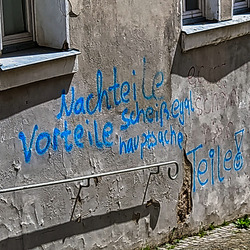 Nachteile
Vorteile scheißegal
hauptsache
Teile